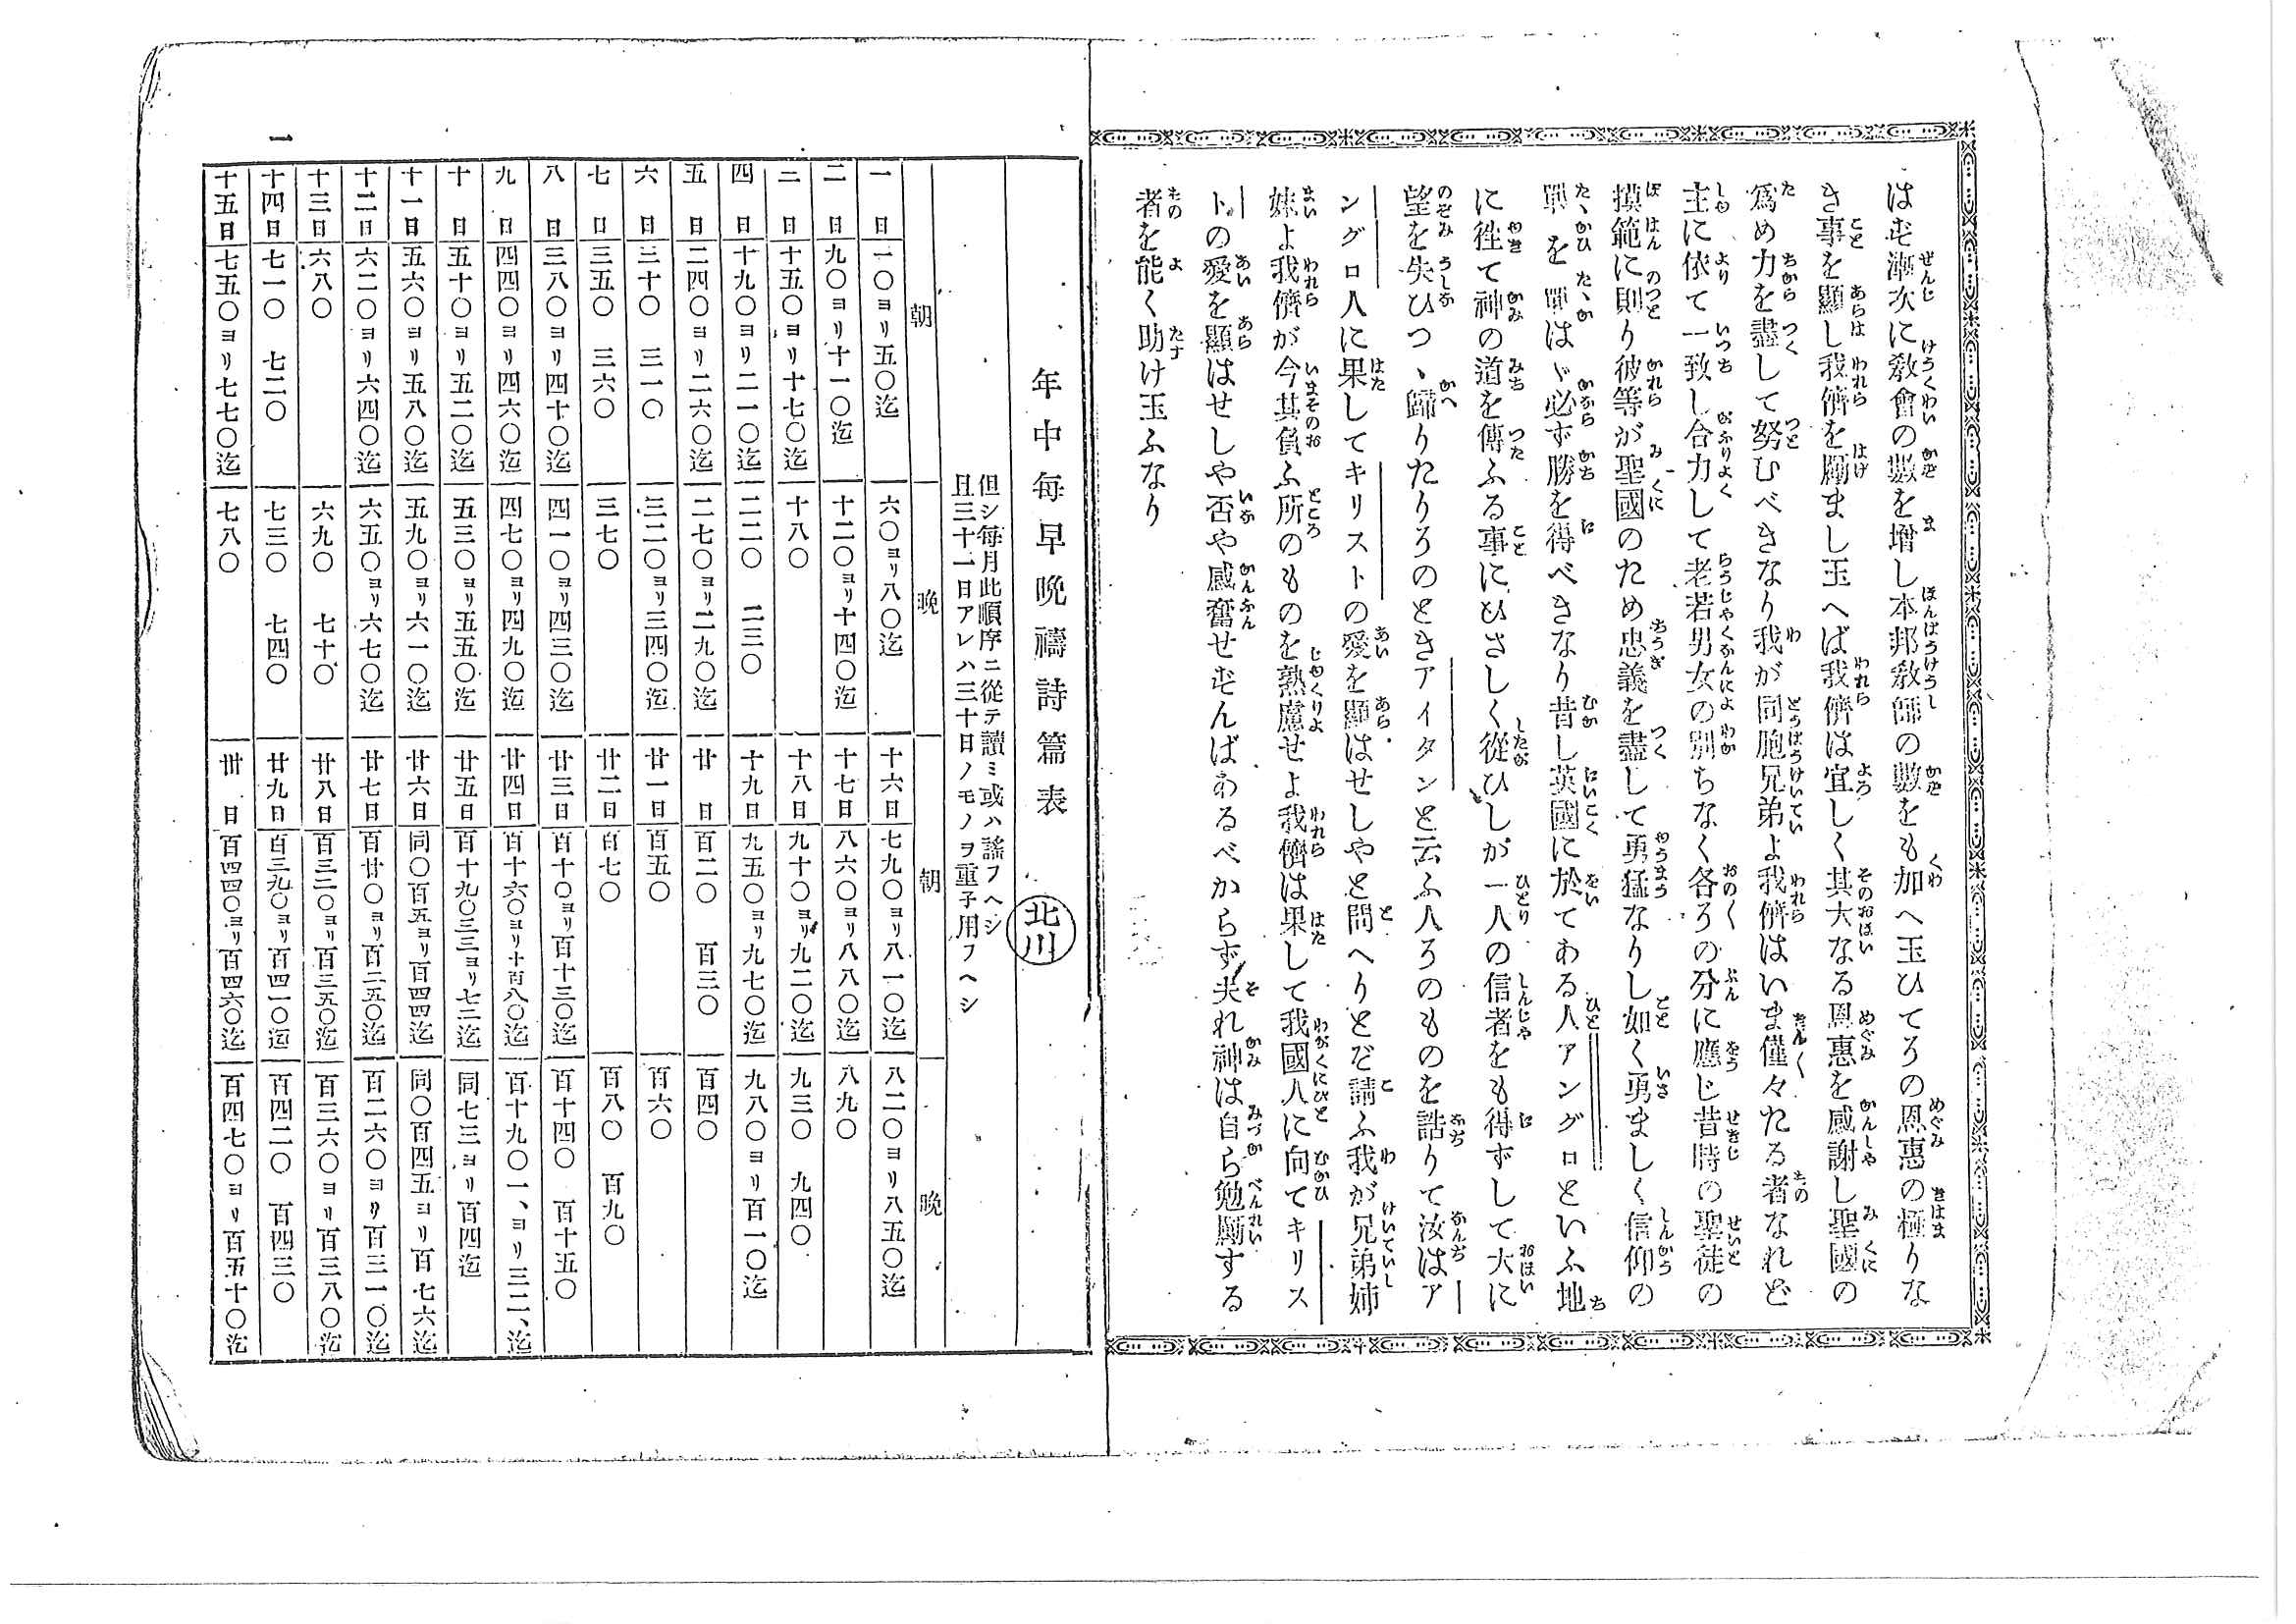 は𛁛漸次に敎會の數を增し本邦敎師の數をも加へ玉ひてろの恩惠の極りな
き事を顯し我儕を勵まし玉へば我儕は宜しく其大なる恩惠を感謝し聖國の
爲め力を盡して努むべきなり我が同胞兄弟よ我儕はいま僅々たる者なれど
主に依て一致し合力して老若男女の別ちなく各ろの分に應じ昔時の聖徒の
摸範に則り彼等が聖國のため忠義を盡して勇猛なりし如く勇ましく信仰の
戰を戰はゞ必ず勝を得べきなり昔し英國に於てある人アングロといふ地
に徃て神の道を傳ふる事にひさしく從ひしが一人の信者をも得ずして大に
望を失ひつゝ歸りたりろのときアイタンと云ふ人ろのものを詰りて汝はア
ングロ人に果してキリストの愛を顯はせしやと問へりとだ請ふ我が兄弟姉
妹よ我儕が今其負ふ所のものを熟慮せよ我儕は果して我國人に向てキリス
トの愛を顯はせしや否や感奮せずんばあるべからず夫れ神は自ら勉勵する
者を能く助け玉ふなり
年中每早晩禱詩篇表
北川
但シ每月此順序ニ從テ讀ミ或ハ謠フヘシ
且三十一日アレハ三十日ノモノヲ重子用フヘシ
朝 晩 朝 晩
一日 一〇ヨリ五〇迄 六〇ヨリ八〇迄 十六日 七九〇ヨリ八一〇迄 八二〇ヨリ八五〇迄
二日 九〇ヨリ十一〇迄 十二〇ヨリ十四〇迄 十七日 八六〇ヨリ八八〇迄 八九〇
三日 十五〇ヨリ十七〇迄 十八〇 十八日 九十〇ヨリ九二〇迄 九三〇 九四〇
四日 十九〇ヨリ二一〇迄 二二〇 二三〇 十九日 九五〇ヨリ九七〇迄 九八〇ヨリ百一〇迄
五日 二四〇ヨリ二六〇迄 二七〇ヨリ二九〇迄 廿日 百二〇 百三〇 百四〇
六日 三十〇 三一〇 三二〇ヨリ三四〇迄 廿一日 百五〇 百六〇
七日 三五〇 三六〇 三七〇 廿二日 百七〇 百八〇 百九〇
八日 三八〇ヨリ四十〇迄 四一〇ヨリ四三〇迄 廿三日 百十〇ヨリ百十三〇迄 百十四〇 百十五〇
九日 四四〇ヨリ四六〇迄 四七〇ヨリ四九〇迄 廿四日 百十六〇ヨリ十百八〇迄 百十九〇一、ヨリ三二、迄
十日 五十〇ヨリ五二〇迄 五三〇ヨリ五五〇迄 廿五日 百十九〇三三ヨリ七二迄 同七三ヨリ百四迄
十一日 五六〇ヨリ五八〇迄 五九〇ヨリ六一〇迄 廿六日 同〇百五ヨリ百四四迄 同〇百四五ヨリ百七六迄
十二日 六二〇ヨリ六四〇迄 六五〇ヨリ六七〇迄 廿七日 百廿〇ヨリ百二五〇迄 百二六〇ヨリ百三一〇迄
十三日 六八〇 六九〇 七十〇 廿八日 百三二〇ヨリ百三五〇迄 百三六〇ヨリ百三八〇迄
十四日 七一〇 七二〇 七三〇 七四〇 廿九日 百三九〇ヨリ百四一〇迄 百四二〇 百四三〇
十五日 七五〇ヨリ七七〇迄 七八〇 卅日 百四四〇ヨリ百四六〇迄 百四七〇ヨリ百五十〇迄
一